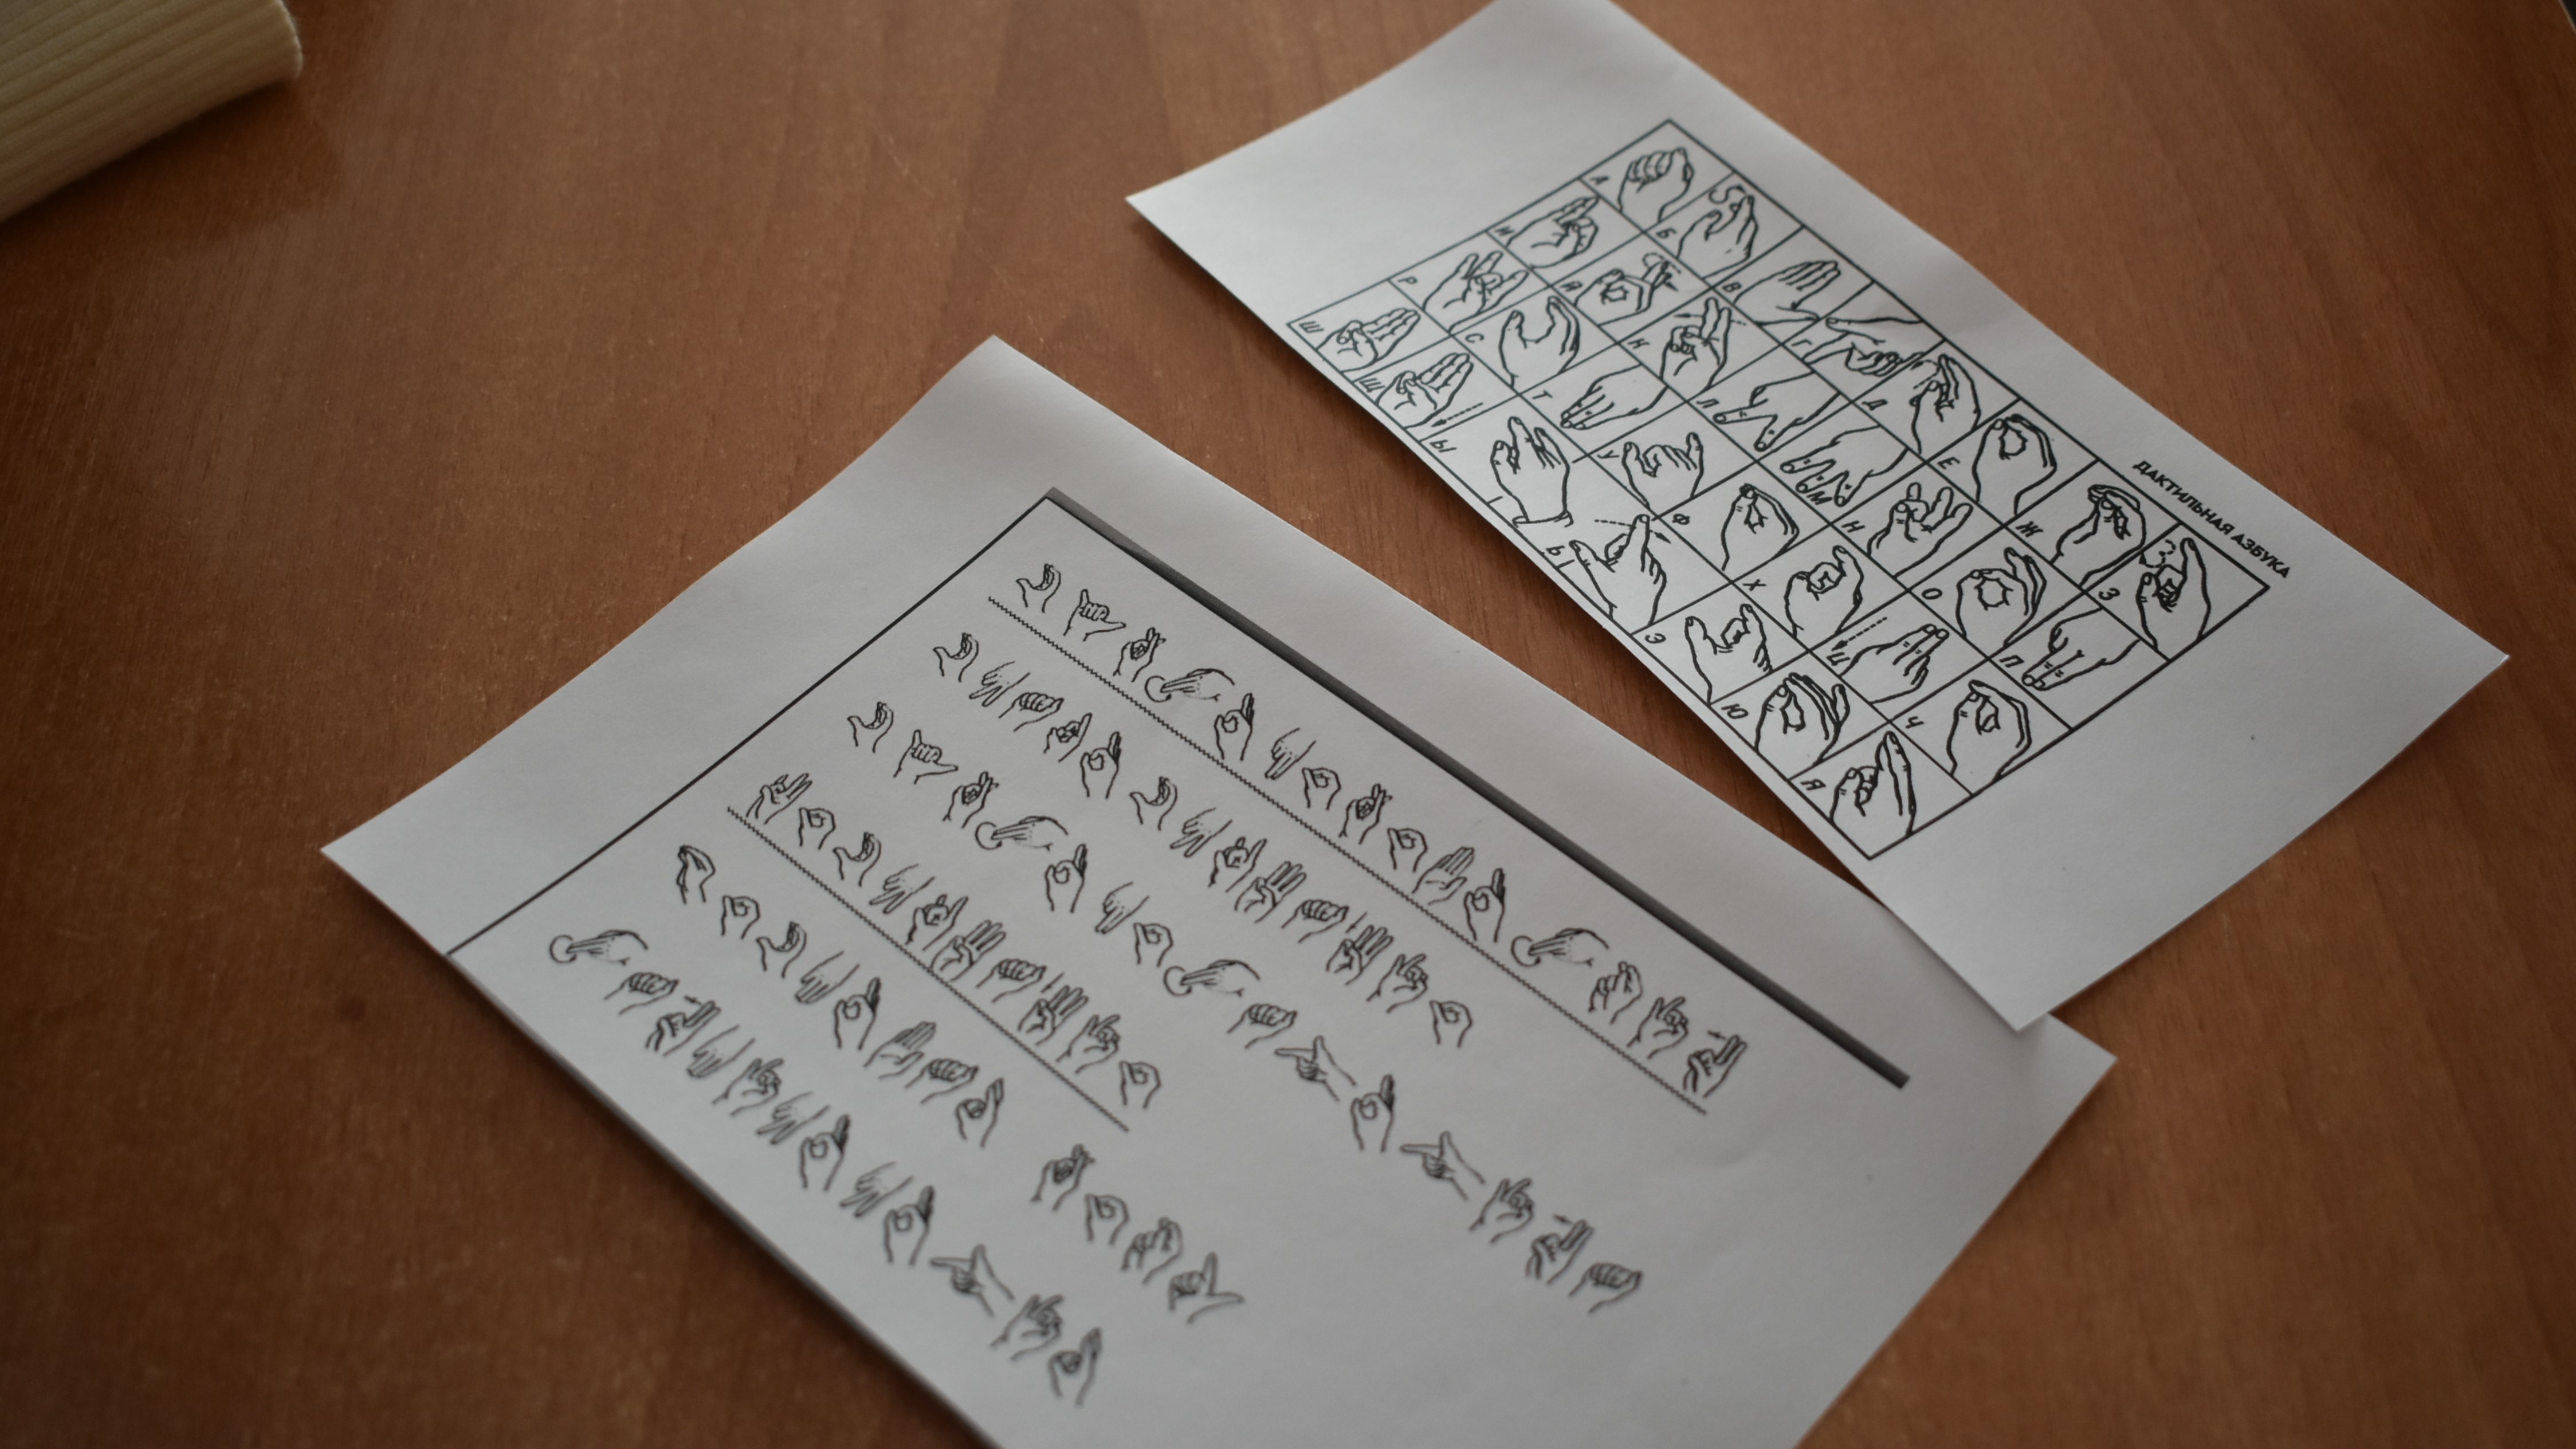 ДАКТИЛЬНАЯ АЗБУКА
А Б В Г Д Е Ж З
И Й К Л М Н О П
Р С Т У Ф Х Ц Ч
Ш Щ Ы Э Ю Я